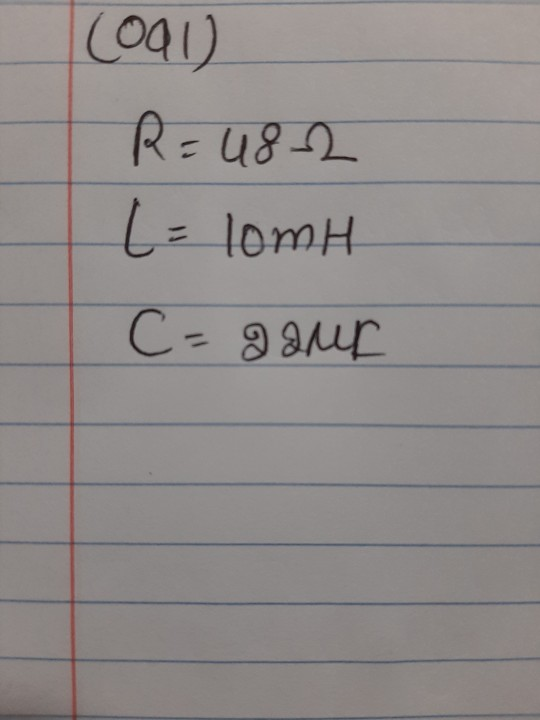 (Oq1)
R = 48 Ω
L = 10mH
C = 22μF